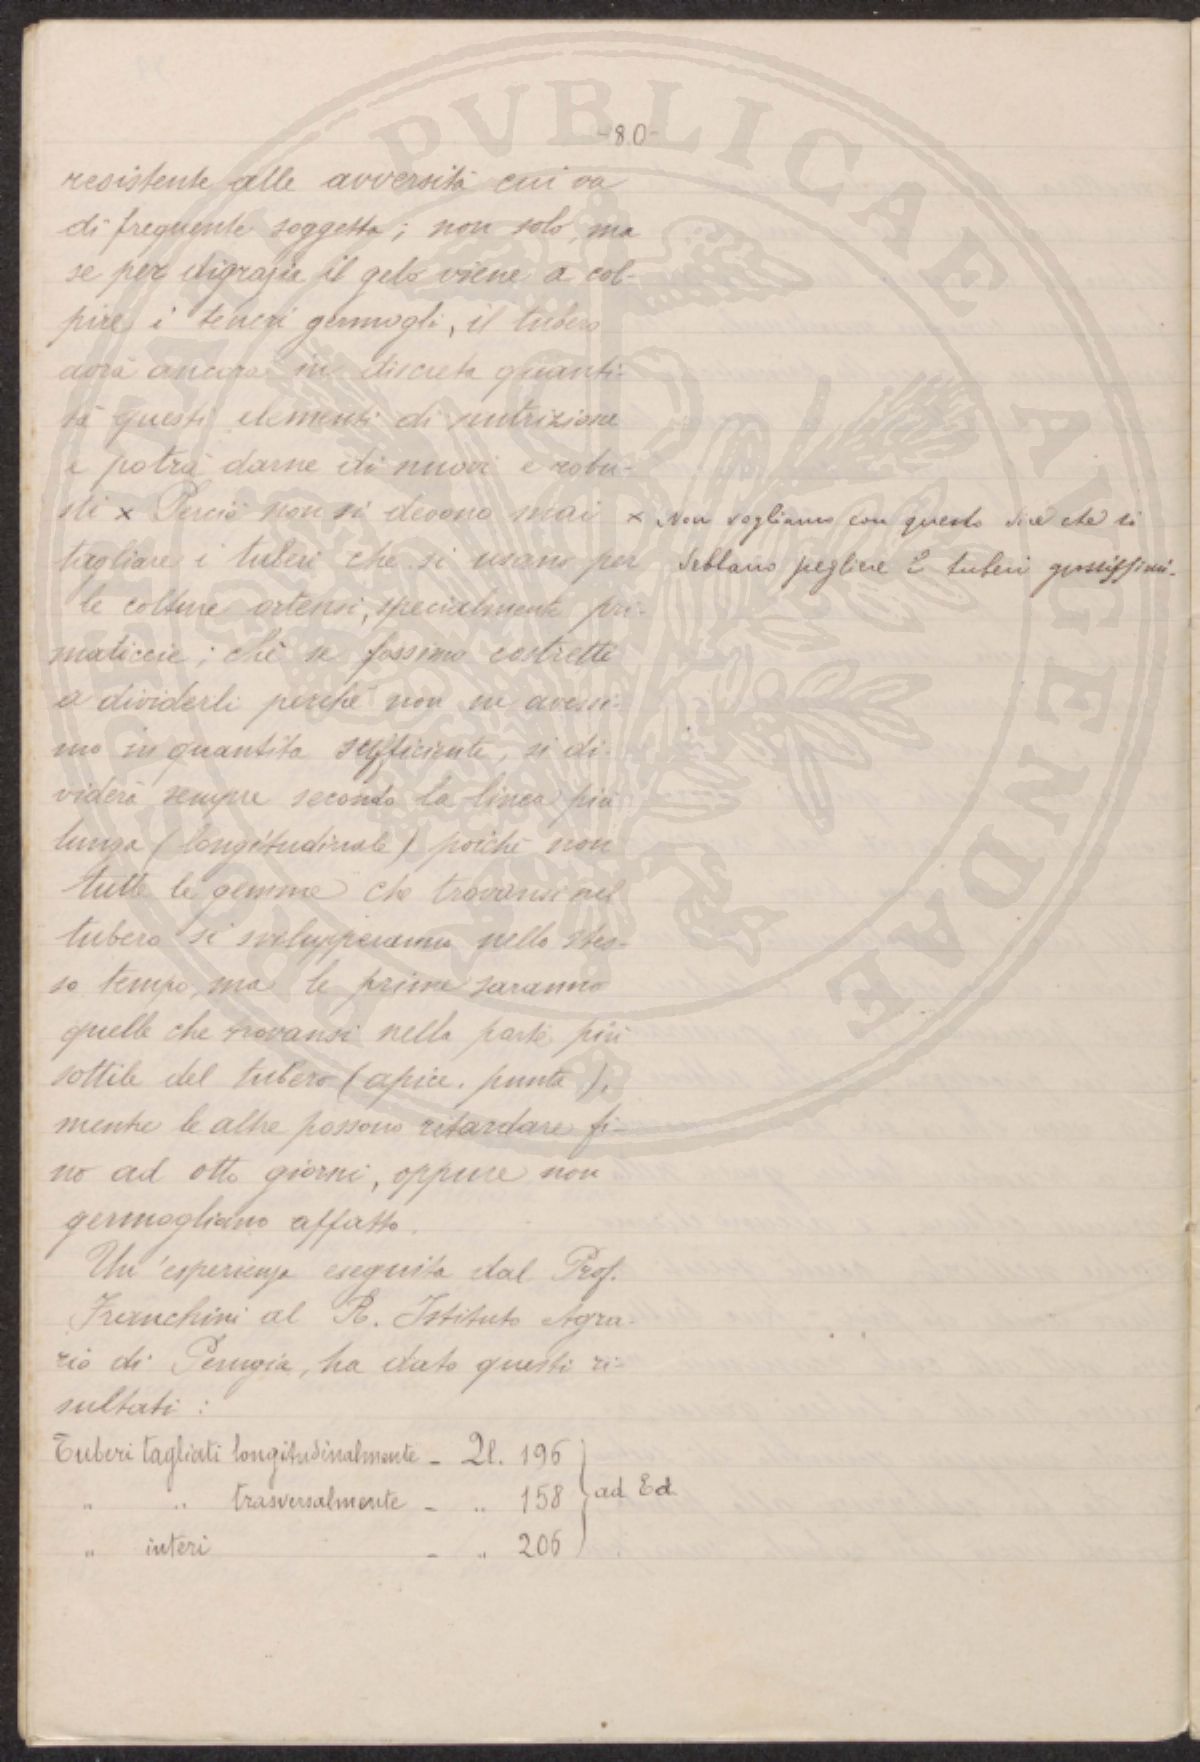 -80-
resistente alle avversità cui va
di frequente soggetta; non solo, ma
se per disgrazia il gelo viene a col-
pire i teneri germogli, il tubero
avrà ancora in discreta quanti-
tà questi elementi di nutrizione
e potrà darne di nuovi e robu-
sti x Perciò non si devono mai
tagliare i tuberi che si usano per
le colture ortensi, specialmente pri-
maticcie; chè se fossimo costretti
a dividerli perchè non ne avessi-
mo in quantità sufficiente, si di-
viderà sempre secondo la linea più
lunga (longitudinale) poichè non
tutte le gemme che trovansi nel
tubero si svilupperanno nello stes-
so tempo, ma le prime saranno
quelle che trovansi nella parte più
sottile del tubero (apice, punta),
mentre le altre possono ritardare fi-
no ad otto giorni, oppure non
germogliano affatto.
Un'esperienza eseguita dal Prof.
Franchini al R. Istituto Agra-
rio di Perugia, ha dato questi ri-
sultati:
Tuberi tagliati longitudinalmente - Ql. 196
" " trasversalmente - " 158 } ad Ed.
" interi - " 206
x Non vogliamo con questo dire che si
debbano pegliere i tuberi grossissimi.
PUBLICAE AUGENDAE